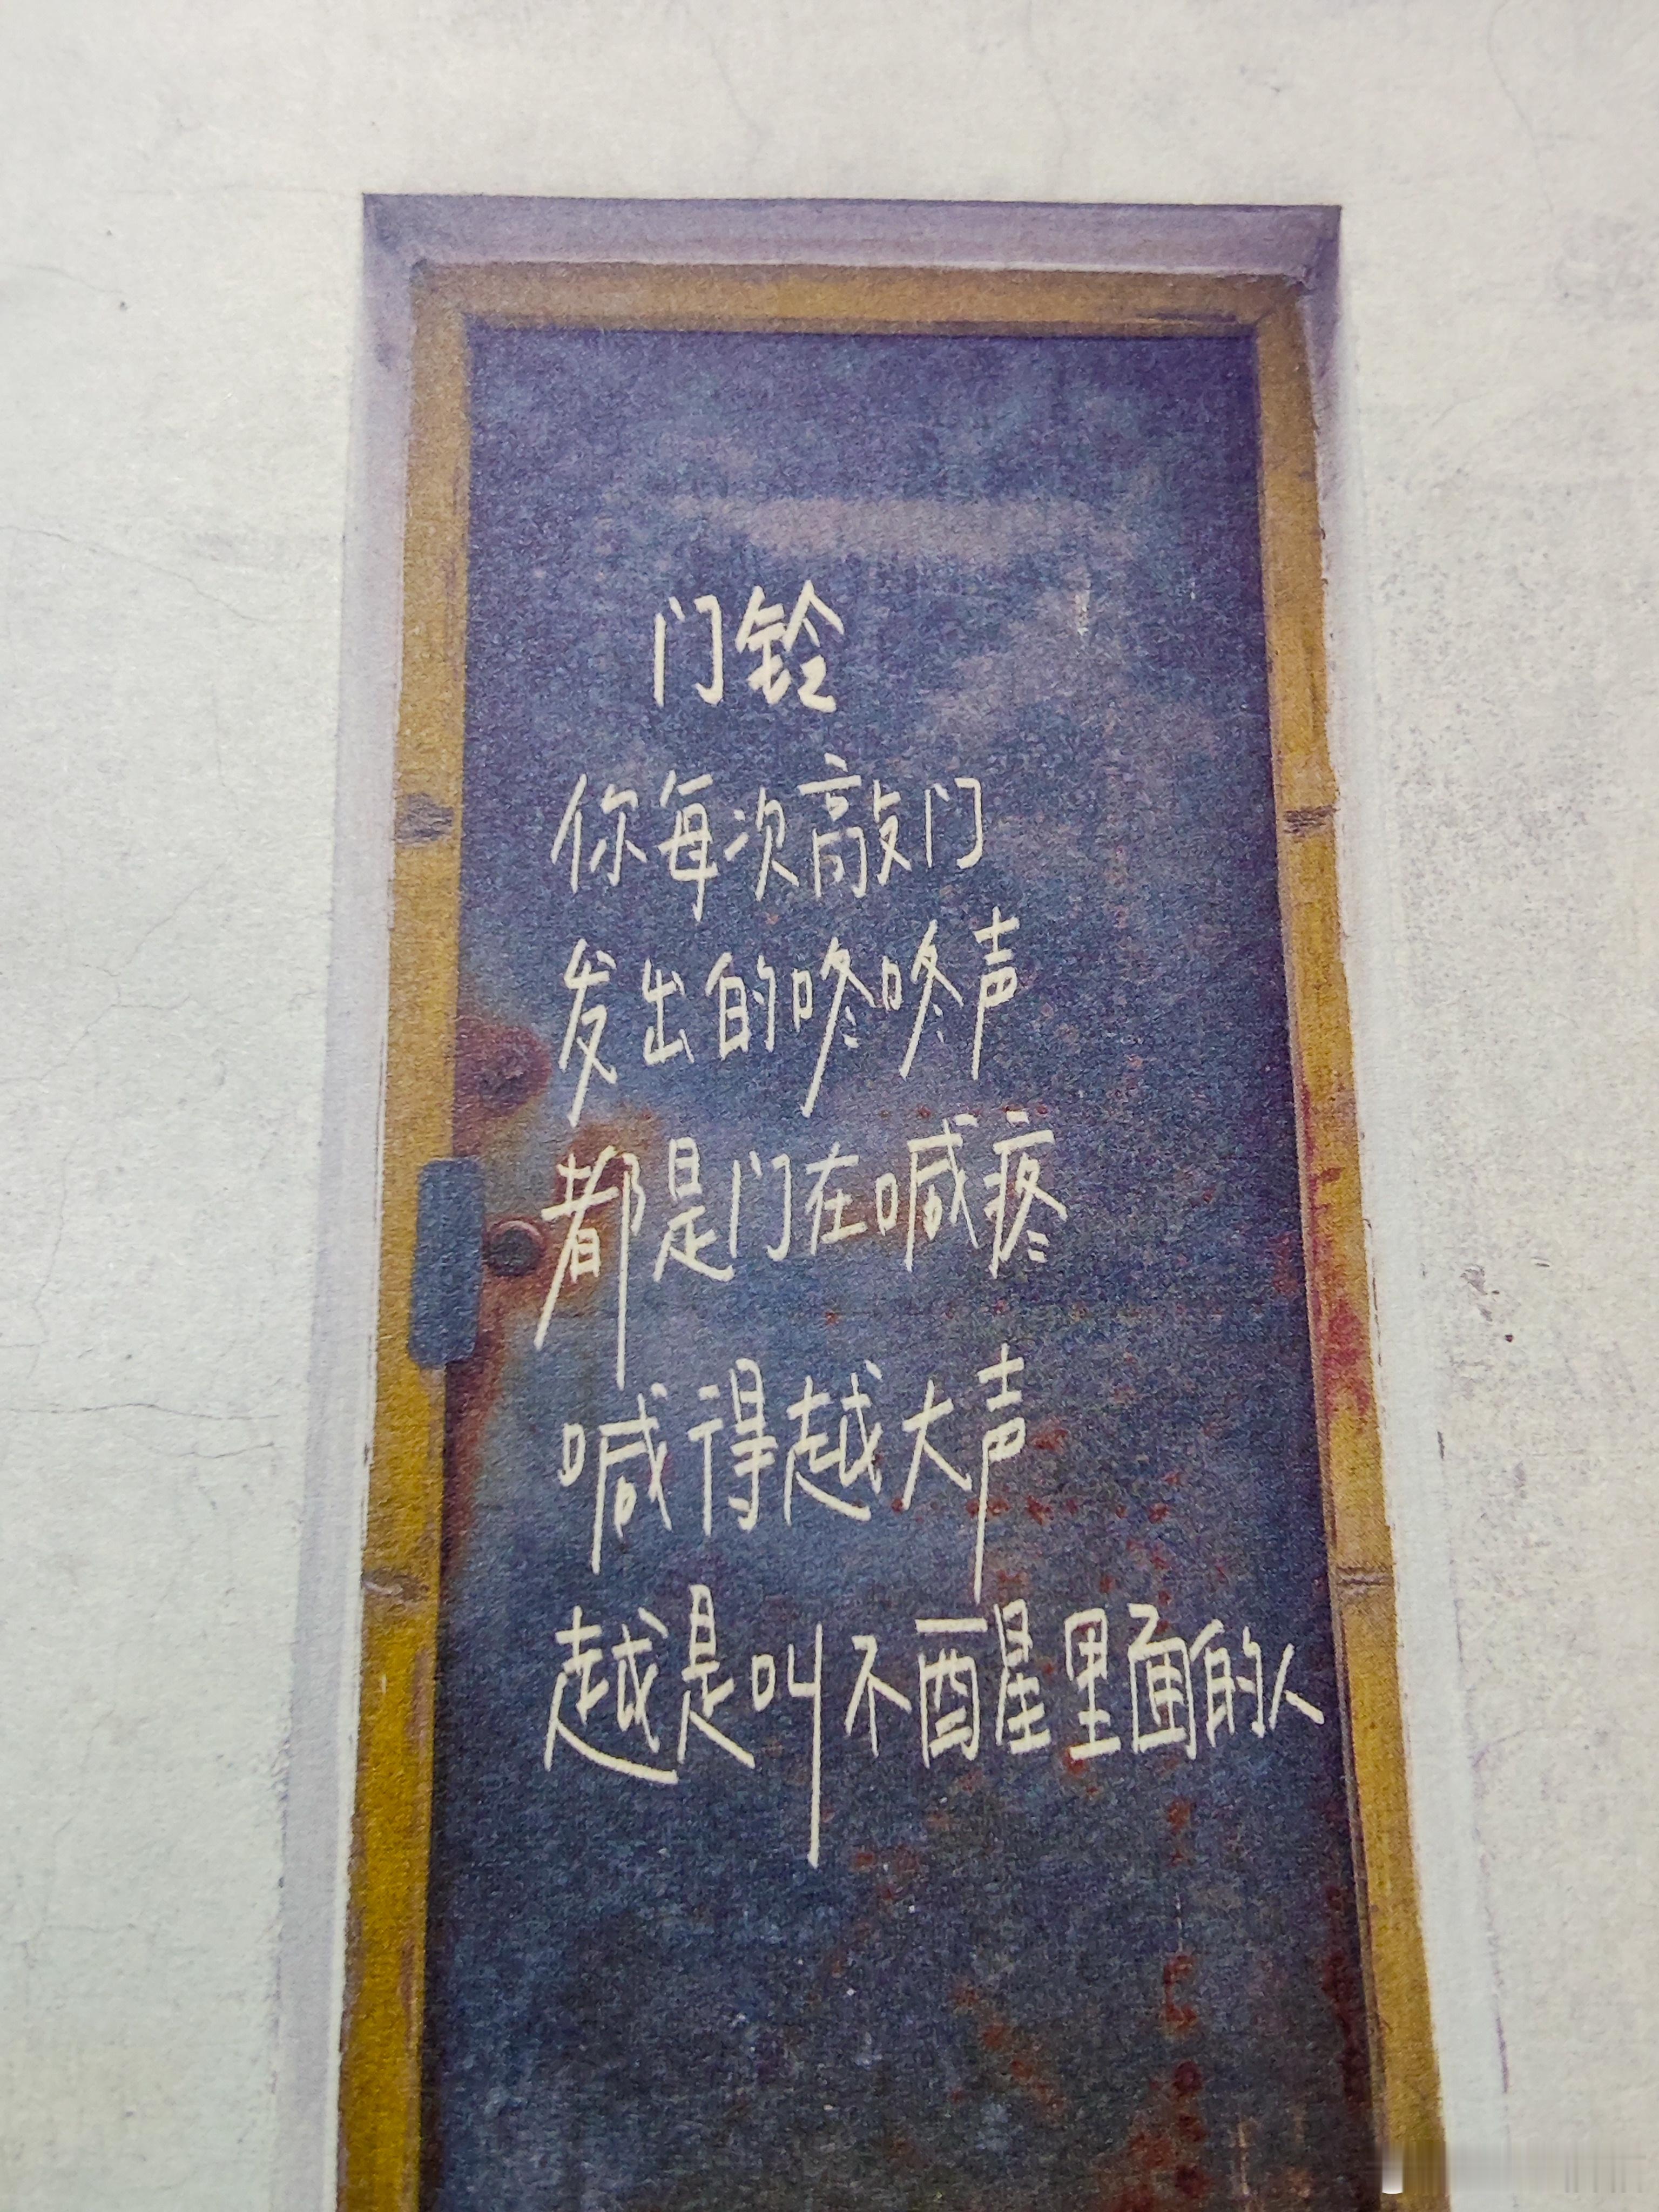 门铃
你每次敲门
发出的咚咚声
都是门在喊疼
喊得越大声
越是叫不醒里面的人